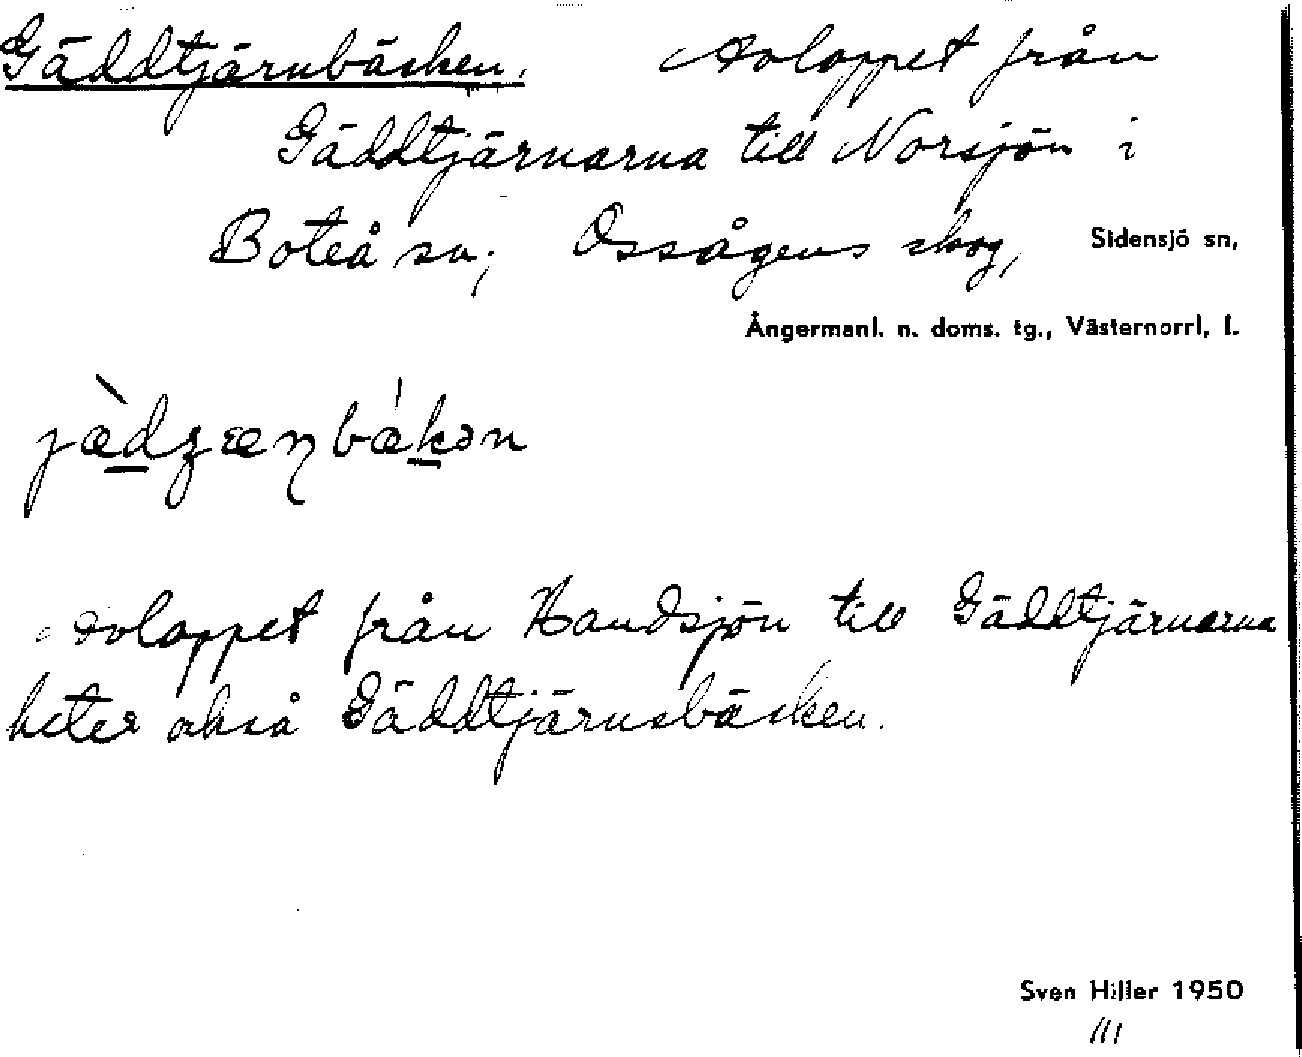 Gäddtjärnbäcken. Avloppet från
Gäddtjärnarna till Norsjön i
Boteå sn; Ossågens skog, Sidensjö sn,
Ångermanl. n. doms. tg., Västernorrl, l.
jæ̀dʒæɳbákən
Avloppet från Handsjön till Gäddtjärnarna
heter också Gäddtjärnsbäcken.
Sven Hiller 1950